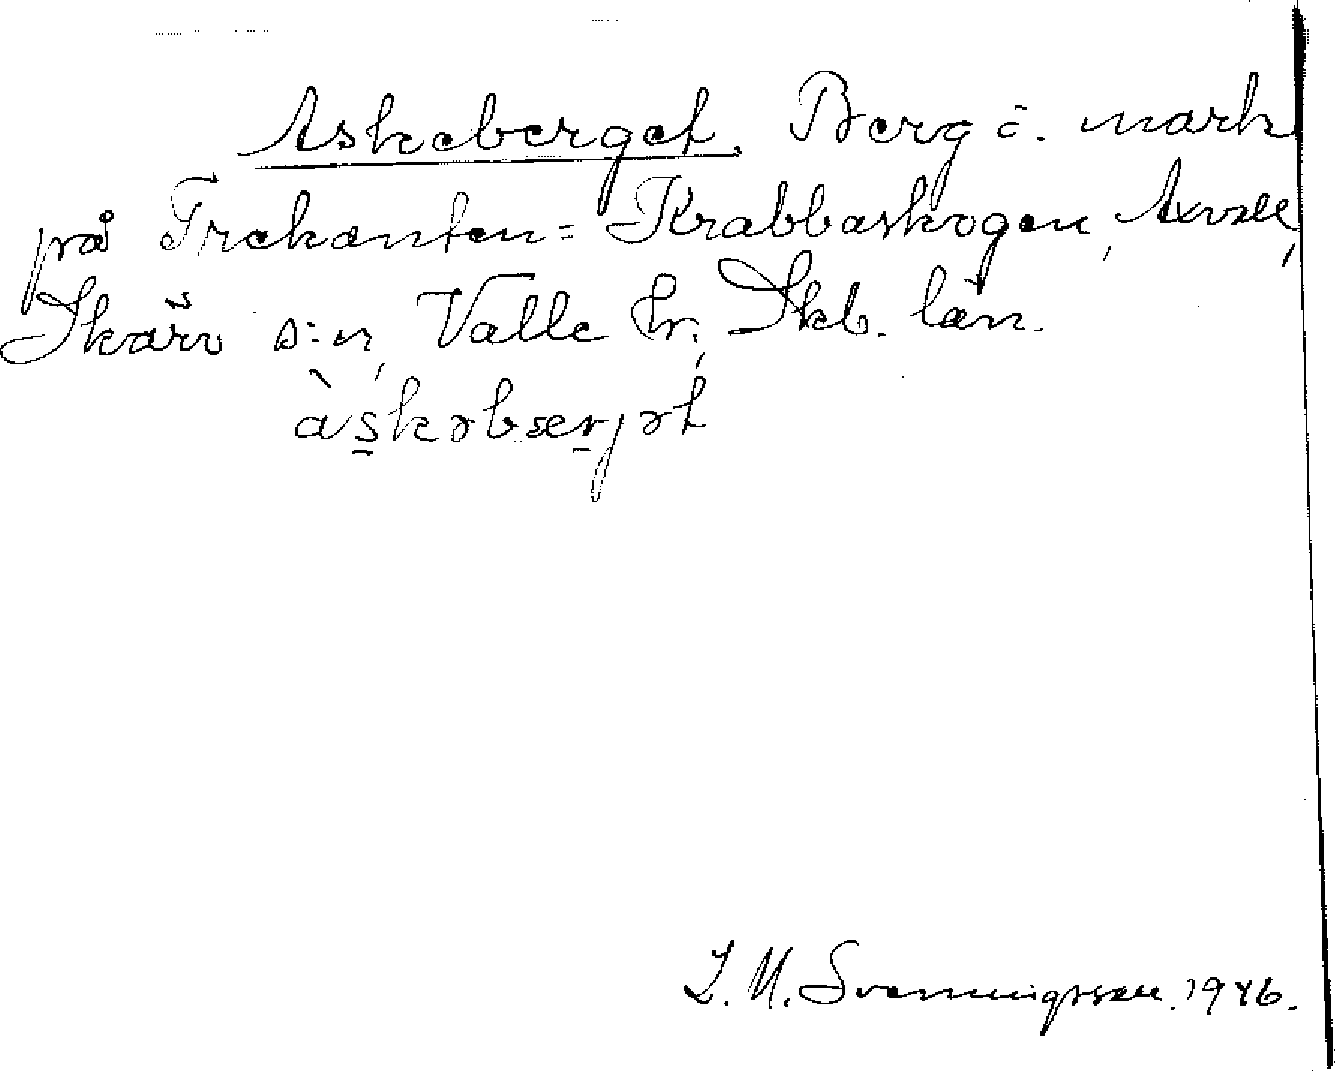 Askeberget. Berg o. mark
på Trekanten = Krabbaskogen, Axvall,
Skärv s:n, Valle hr, Skb. län.
àskəbærjət
I. M. Svenningsson. 1946.